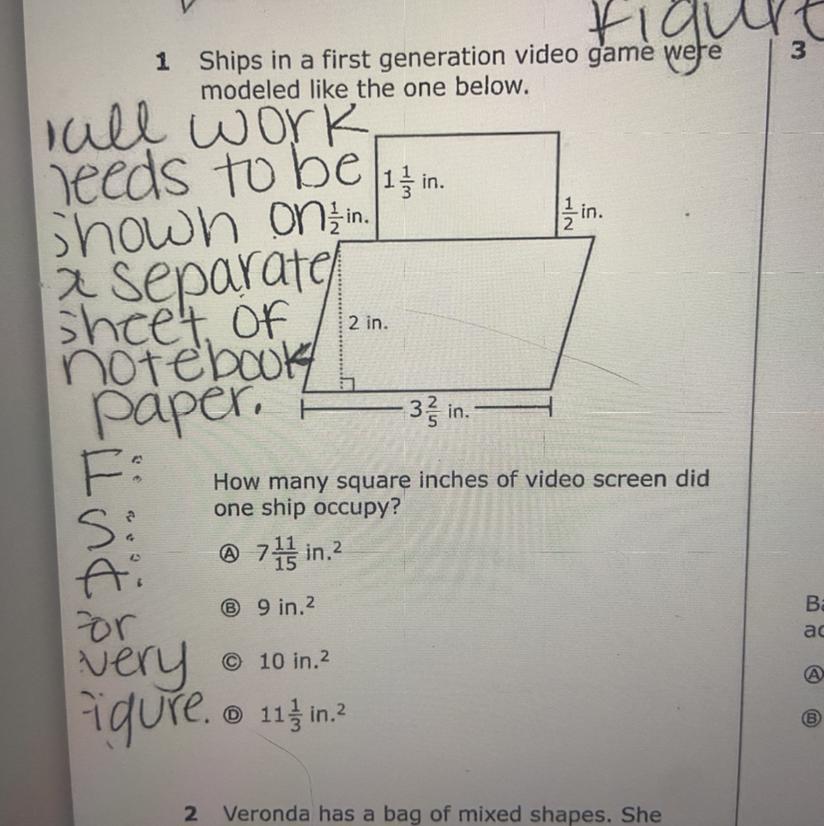 Figure
1 Ships in a first generation video game were
modeled like the one below.
3
all work
needs to be
shown on
a separate
sheet of
notebook
paper.
1 1/3 in.
1/2 in.
1/2 in.
2 in.
3 2/5 in.
F:
S:
A:
for
every
figure.
How many square inches of video screen did
one ship occupy?
Ⓐ 7 11/15 in.²
Ⓑ 9 in.²
Ⓒ 10 in.²
Ⓓ 11 1/3 in.²
Ⓐ
Ⓑ
2 Veronda has a bag of mixed shapes. She